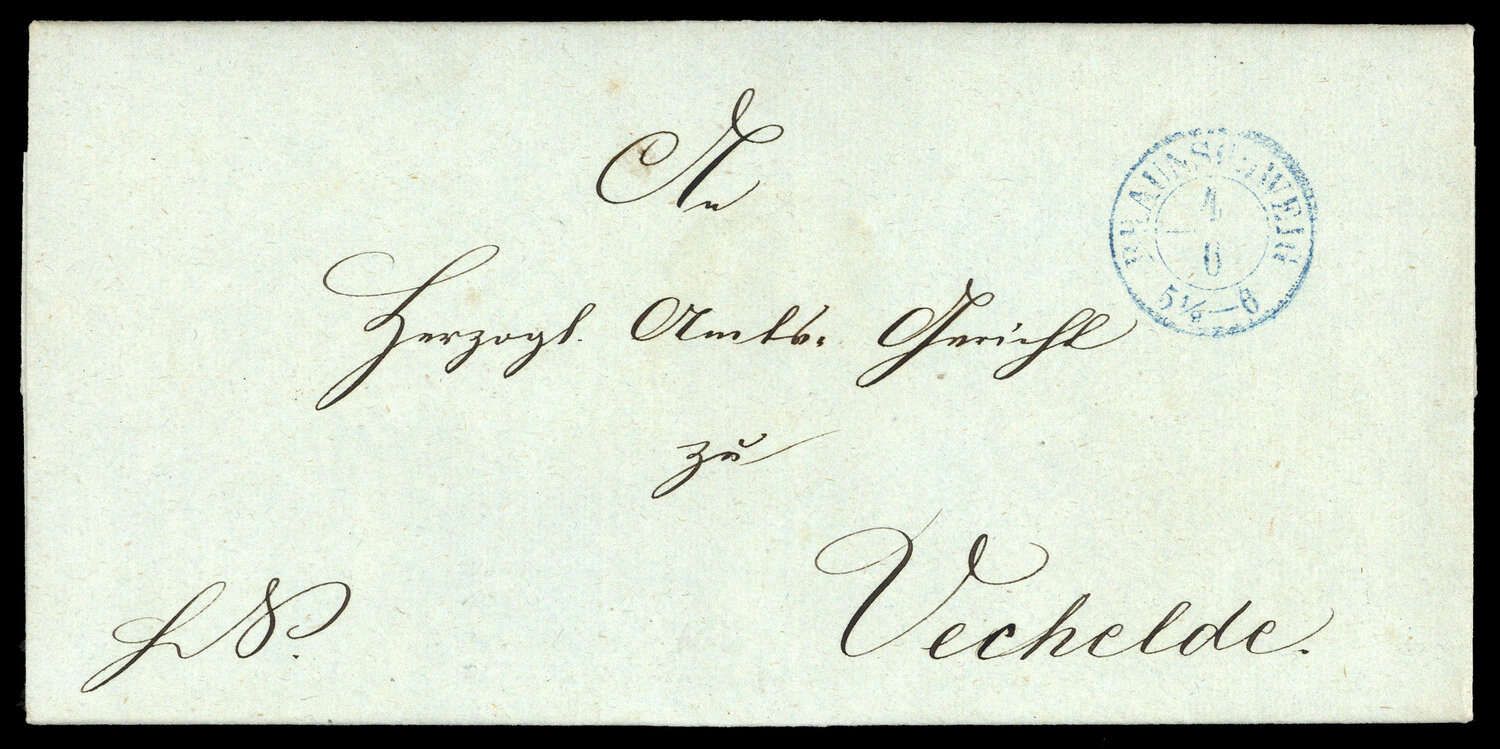 An
Herzogl. Amts-Gericht
zu
Vechelde.
BRAUNSCHWEIG
4
6
5½—6